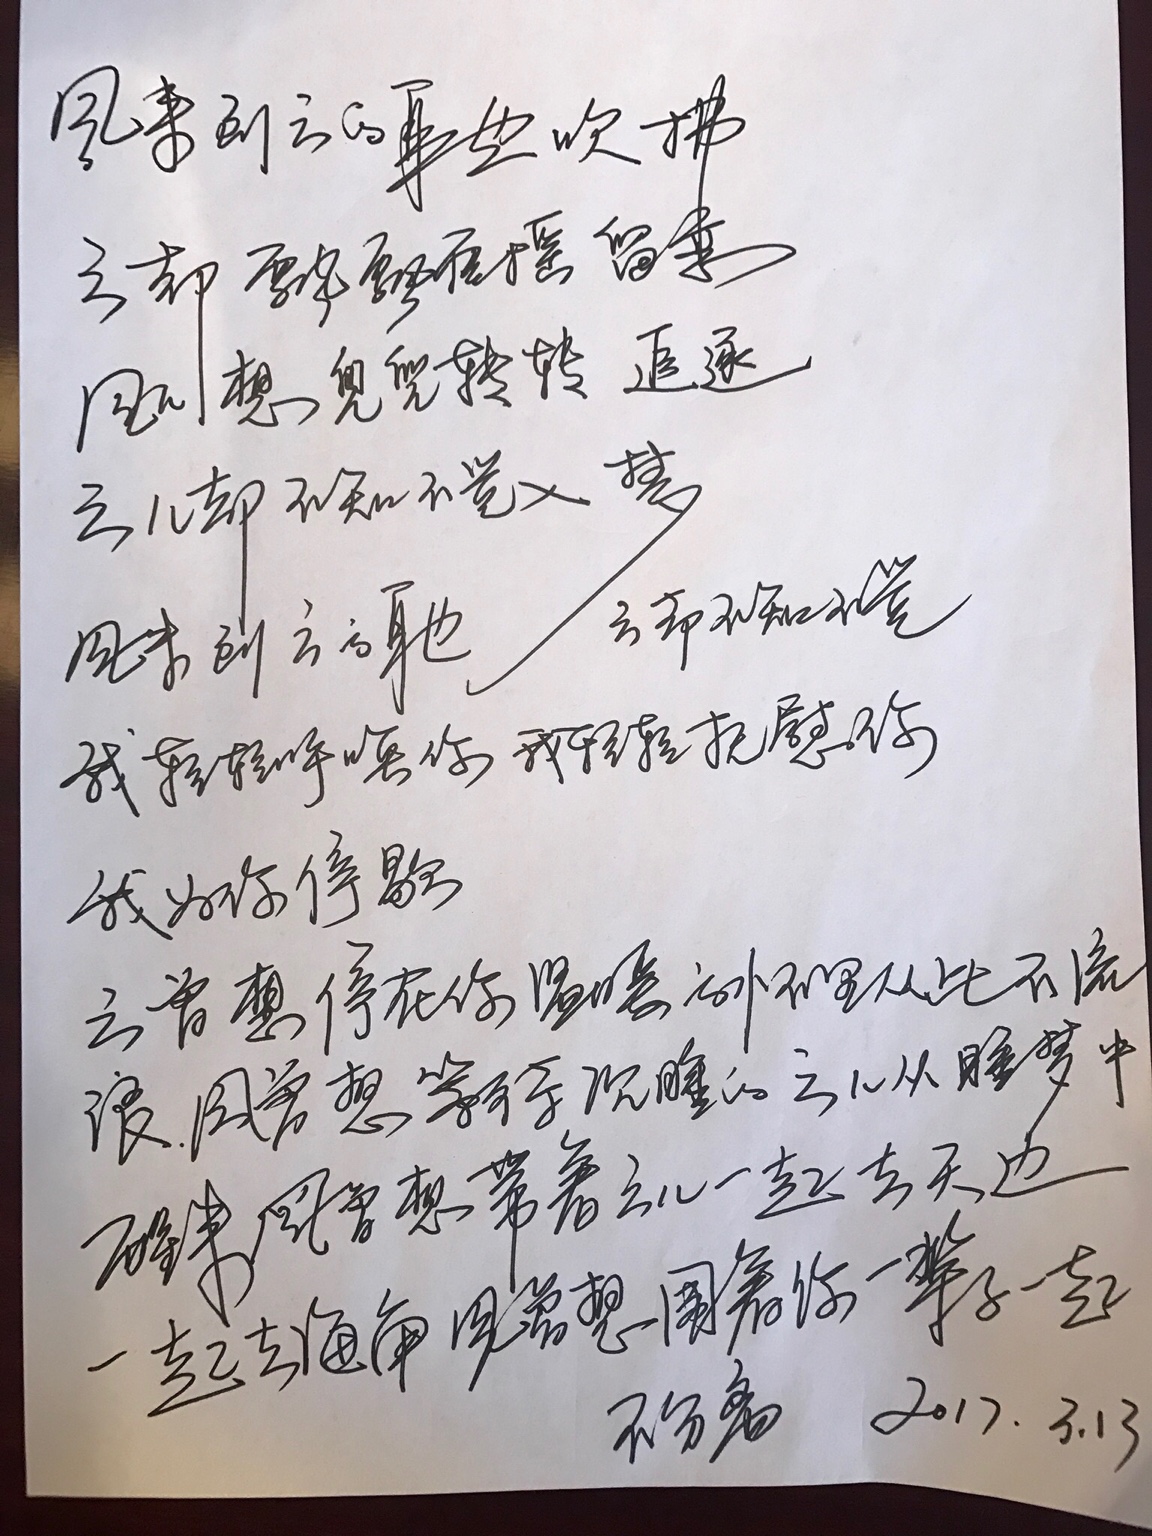 风来到云的耳边吹拂
云却飘飘摇摇留恋
风儿想兜兜转转追逐
云儿却不知不觉入梦
风来到云的耳边 云却不知不觉
我轻轻呼唤你 我轻轻抚慰你
我为你停歇
云曾想停在你温暖的怀里从此不流
浪.风曾想等待沉睡的云儿从睡梦中
醒来 风曾想带着云儿一起去天边
一起去海角 风曾想围着你一辈子一起
不分离 2017.3.13